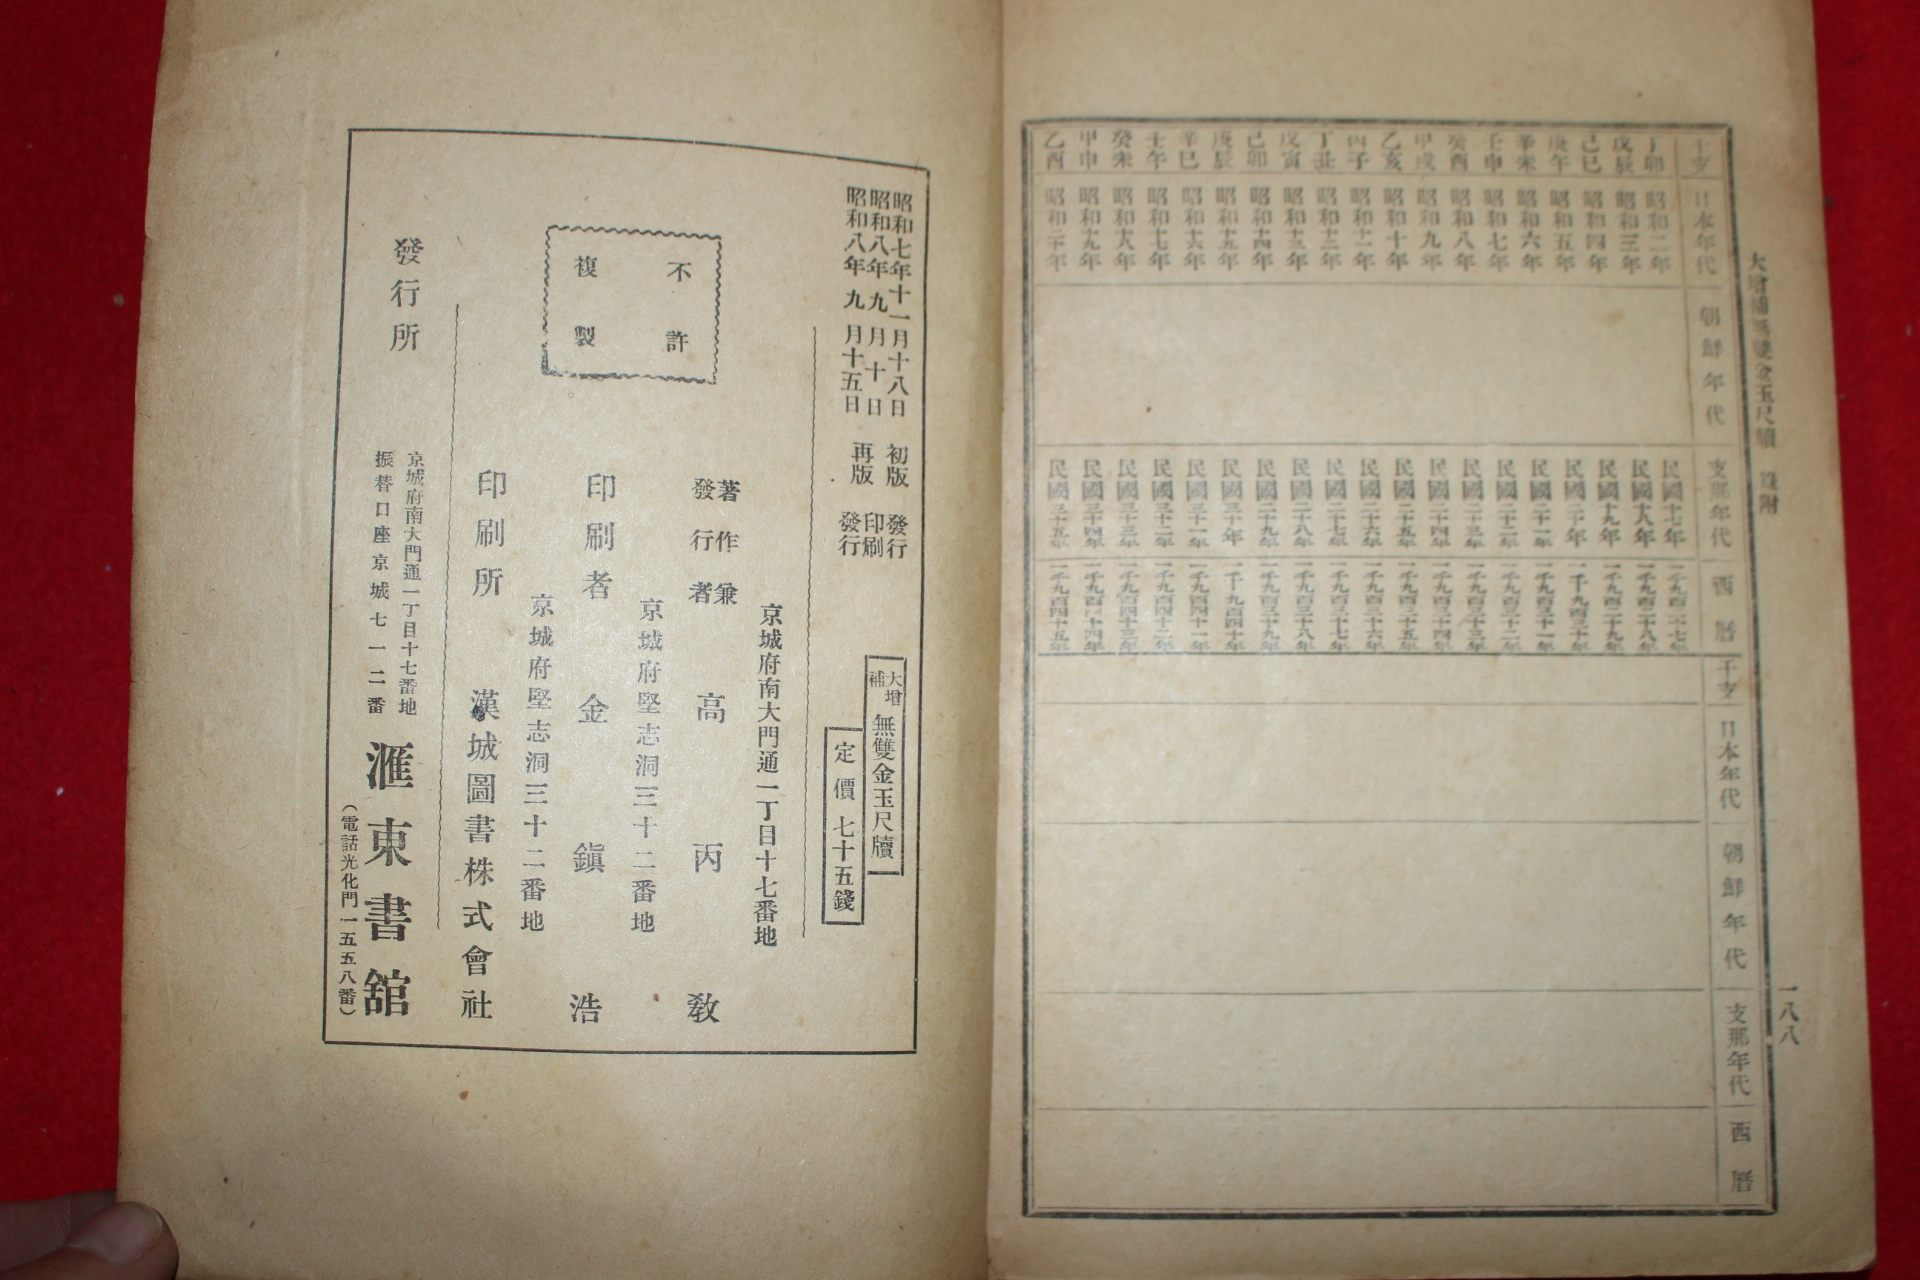 大增補無雙金玉尺牘
一八八
干支
日本年代
朝鮮年代
支那年代
西曆
丁卯 昭和二年 民國十七年 一千九百二十七年
戊辰 昭和三年 民國十八年 一千九百二十八年
己巳 昭和四年 民國十九年 一千九百二十九年
庚午 昭和五年 民國二十年 一千九百三十年
辛未 昭和六年 民國二十一年 一千九百三十一年
壬申 昭和七年 民國二十二年 一千九百三十二年
癸酉 昭和八年 民國二十三年 一千九百三十三年
甲戌 昭和九年 民國二十四年 一千九百三十四年
乙亥 昭和十年 民國二十五年 一千九百三十五年
丙子 昭和十一年 民國二十六年 一千九百三十六年
丁丑 昭和十二年 民國二十七年 一千九百三十七年
戊寅 昭和十三年 民國二十八年 一千九百三十八年
己卯 昭和十四年 民國二十九年 一千九百三十九年
庚辰 昭和十五年 民國三十年 一千九百四十年
辛巳 昭和十六年 民國三十一年 一千九百四十一年
壬午 昭和十七年 民國三十二年 一千九百四十二年
癸未 昭和十八年 民國三十三年 一千九百四十三年
甲申 昭和十九年 民國三十四年 一千九百四十四年
乙酉 昭和二十年 民國三十五年 一千九百四十五年
干支
日本年代
朝鮮年代
支那年代
西曆
昭和七年十一月十八日 初版 發行
昭和八年九月十日 印刷
昭和八年九月十五日 再版 發行
大增補 無雙金玉尺牘
定價七十五錢
京城府南大門通一丁目十七番地
著作兼發行者 高丙敎
京城府堅志洞三十二番地
印刷者 金鎭浩
京城府堅志洞三十二番地
印刷所 漢城圖書株式會社
不許複製
發行所
京城府南大門通一丁目十七番地
振替口座京城七一二番
滙東書舘
(電話光化門一五五八番)